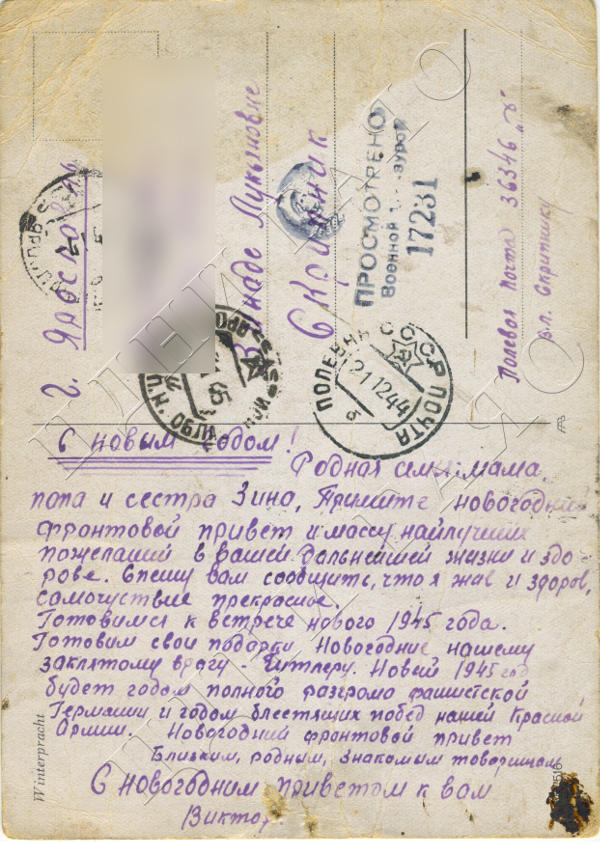 г. Ярославль
Зинаде Лукыновне
Скрипник
ПРОСМОТРЕНО
Военной Цензурой
17231
Полевая Почта 36346 "д"
в.п. Скрипнику
ПОЛЕВАЯ ПОЧТА
СССР
21 12 44
б
С новым годом!
Родная семя: мама,
папа и сестра Зина, Примите новогодний
фронтовой привет и массу найлучших
пожеланий в вашей дальнейшей жизни и здо
ровье. Спешу вам сообщить, что я жив и здоров,
самочуствие прекрасное.
Готовимся к встрече нового 1945 года.
Готовим свои подарки Новогодние нашему
заклятому врагу - Гитлеру. Новый 1945 год
будет годом полного разгрома фашистской
Германии и годом блестящих побед нашей Красной
Армии. Новогодний фронтовой привет
Близким, родным, знакомым товарищам
С Новогодним приветом к вам
Виктор.
Winterpracht